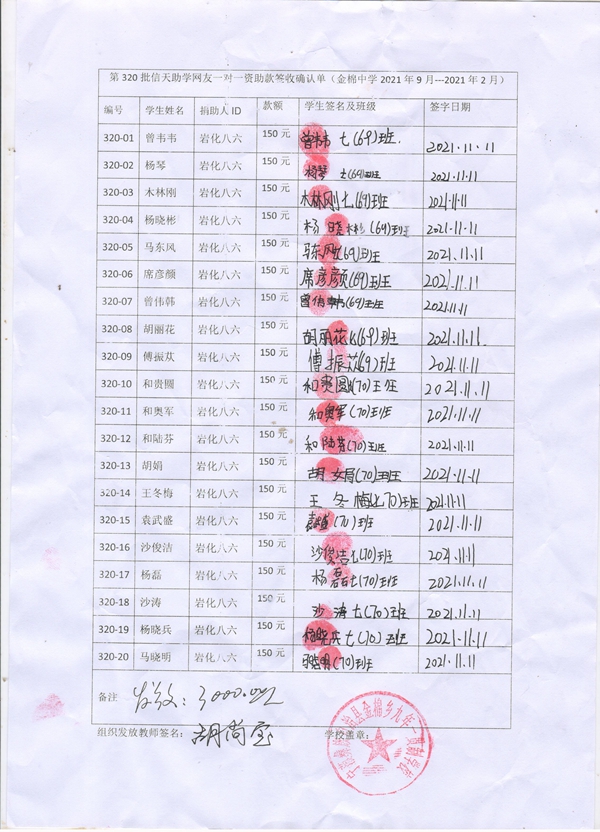 第 320 批信天助学网友一对一资助款签收确认单（金棉中学 2021 年 9 月---2021 年 2 月）
编号 学生姓名 捐助人 ID 款额 学生签名及班级 签字日期
320-01 曾韦韦 岩化八六 150 元 曾韦韦 七(69)班 2021.11.11
320-02 杨琴 岩化八六 150 元 杨琴 七(69)班 2021.11.11
320-03 木林刚 岩化八六 150 元 木林刚 七(69)班 2021.11.11
320-04 杨晓彬 岩化八六 150 元 杨晓彬 (69)班 2021.11.11
320-05 马东风 岩化八六 150 元 马东风 (69)班 2021.11.11
320-06 席彦颜 岩化八六 150 元 席彦颜(69)班 2021.11.11
320-07 曾伟韩 岩化八六 150 元 曾伟韩(69)班 2021.11.11
320-08 胡丽花 岩化八六 150 元 胡丽花 七(69)班 2021.11.11
320-09 傅振苁 岩化八六 150 元 傅振苁(69)班 2021.11.11
320-10 和贵圆 岩化八六 150 元 和贵圆(70)班 2021.11.11
320-11 和奥军 岩化八六 150 元 和奥军(70)班 2021.11.11
320-12 和陆芬 岩化八六 150 元 和陆芬(70)班 2021.11.11
320-13 胡娟 岩化八六 150 元 胡娟(70)班 2021.11.11
320-14 王冬梅 岩化八六 150 元 王冬梅七(70)班 2021.11.11
320-15 袁武盛 岩化八六 150 元 (70)班 2021.11.11
320-16 沙俊洁 岩化八六 150 元 沙俊洁七(70)班 2021.11.11
320-17 杨磊 岩化八六 150 元 杨磊七(70)班 2021.11.11
320-18 沙涛 岩化八六 150 元 沙涛七(70)班 2021.11.11
320-19 杨晓兵 岩化八六 150 元 杨晓兵七(70)班 2021.11.11
320-20 马晓明 岩化八六 150 元 马晓明(70)班 2021.11.11
备注 3000.00元
组织发放教师签名： 胡尚宝 学校盖章：
县金棉乡九年一贯制学校